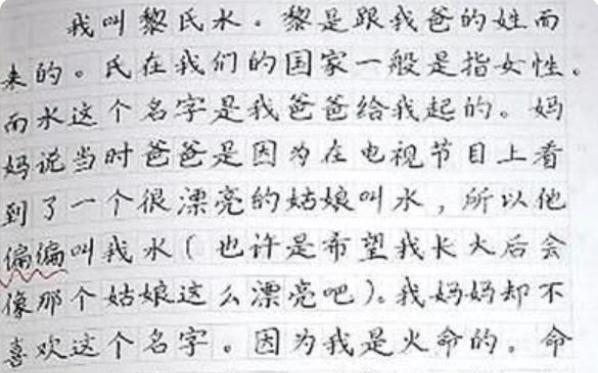 我叫黎氏水。黎是跟我爸的姓而
来的。氏在我们的国家一般是指女性。
而水这个名字是我爸爸给我起的。妈
妈说当时爸爸是因为在电视节目上看
到了一个很漂亮的姑娘叫水，所以他
偏偏叫我水（也许是希望我长大后会
像那个姑娘这么漂亮吧）。我妈妈却不
喜欢这个名字。因为我是火命的。命